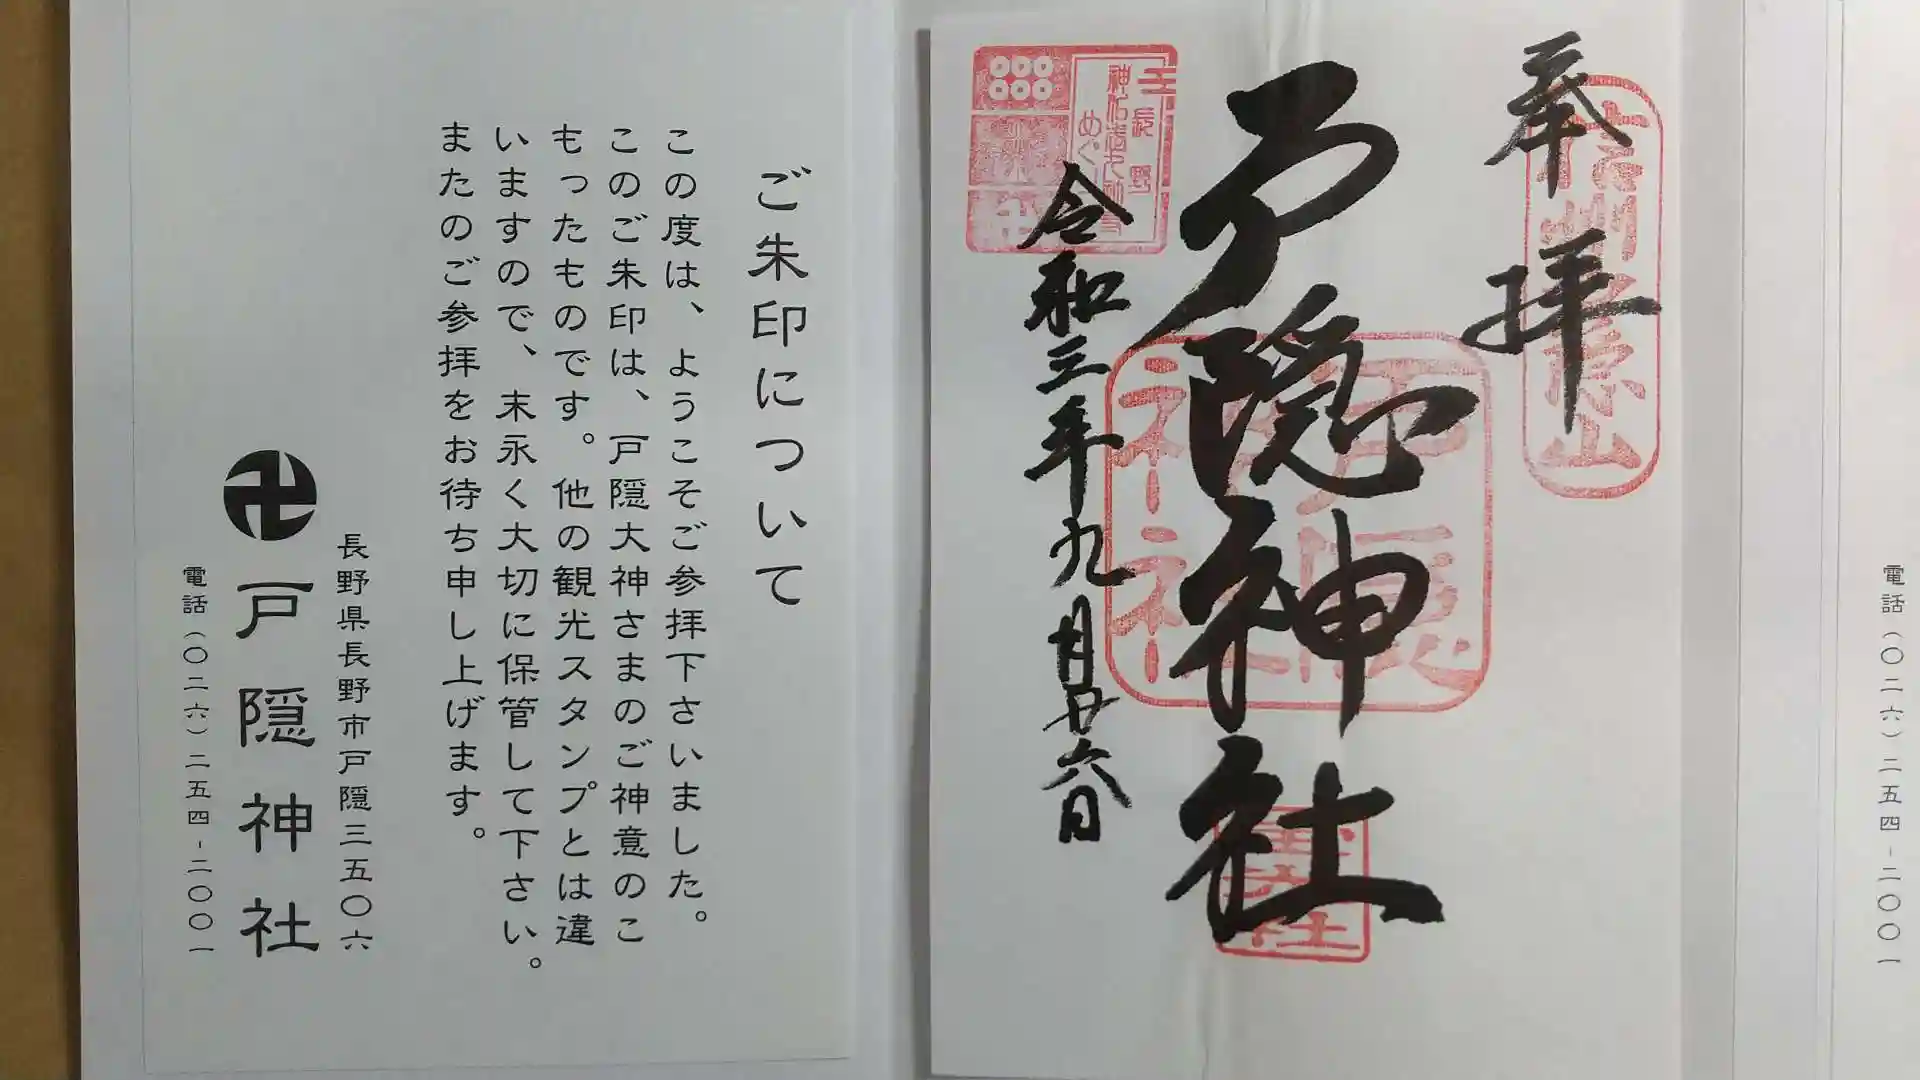 奉拝
戸隠神社
令和三年九月廿六日
戸隠
神社
ご朱印について
この度は、ようこそご参拝下さいました。
このご朱印は、戸隠大神さまのご神意のこ
もったものです。他の観光スタンプとは違
いますので、末永く大切に保管して下さい。
またのご参拝をお待ち申し上げます。
長野県長野市戸隠三五〇六
戸隠神社
電話(〇二六)二五四-二〇〇一
電話(〇二六)二五四-二〇〇一